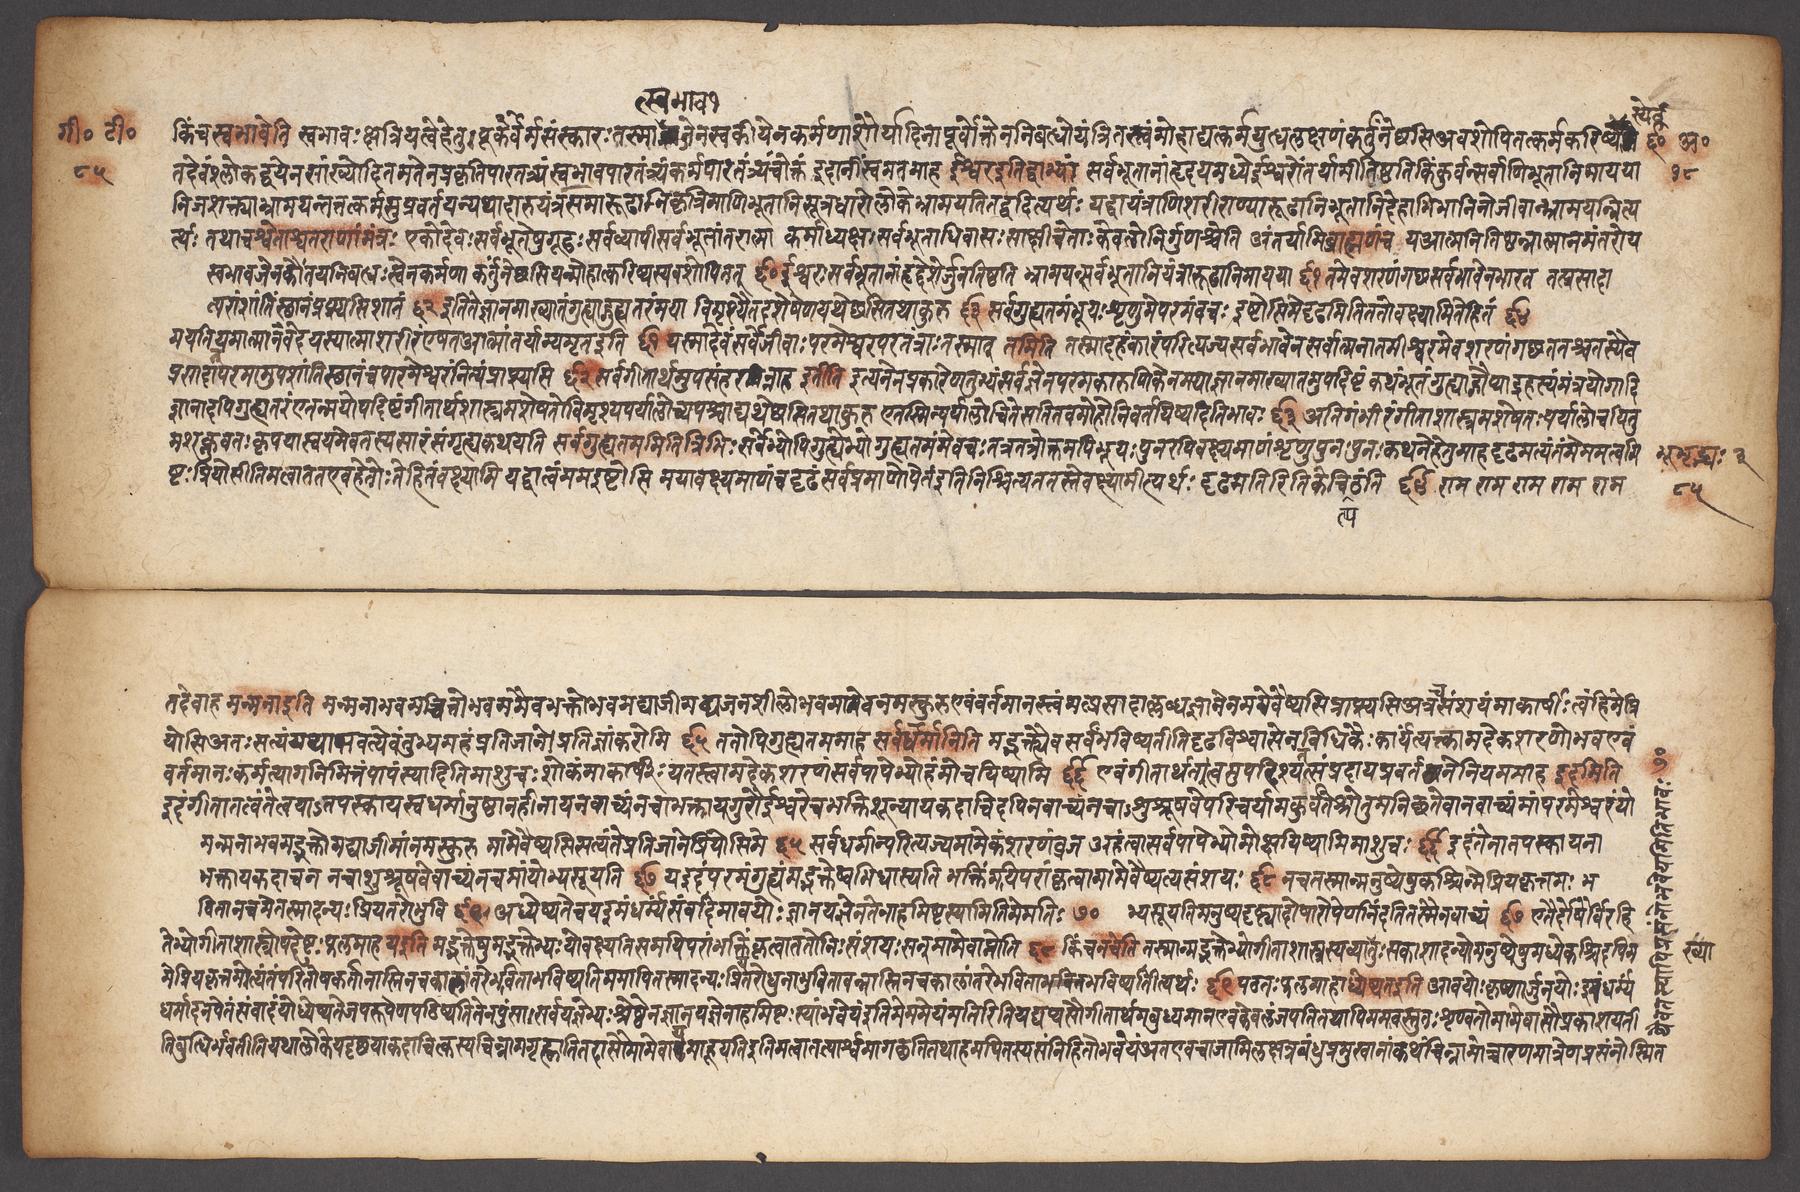 त्स्वभाव१
गी० टी० किंच स्वभावेति स्वभावः क्षत्रियत्वेहेतुः पूर्वकर्मसंस्कारः तस्माज्जातेनस्वकीयेनकर्मणाशौर्यादिनापूर्वोक्तेननिबद्धोयंत्रितस्त्वंमोहाद्यत्कर्मयुद्धलक्षणंकर्तुंनेच्छसिअवशोपितत्कर्मकरिष्य ६० अ०
८५ तदेवंश्लोकद्वयेनसांख्यादिमतेनप्रकृतिपारतंत्र्यंस्वभावपारतंत्र्यंकर्मपारतंत्र्यंचोक्तं इदानींस्वमतमाह ईश्वरइतिद्वाभ्यां सर्वभूतानांहृदयमध्येईश्वरोंतर्यामीतिष्ठतिकिंकुर्वन्सर्वाणिभूतानिमायया १८
निजशक्त्याभ्रामयन्तत्तत्कर्मसुप्रवर्तयन्यथादारुयंत्रसमारूढानिकृत्रिमाणिभूतानिसूत्रधारोलोकेभ्रामयतितद्वदित्यर्थः यद्वायंत्राणिशरीराण्यारूढानिभूतानिदेहाभिमानिनोजीवान्भ्रामयन्नित्य
र्थः तथाचश्वेताश्वतराणांमंत्रः एकोदेवःसर्वभूतेषुगूढःसर्वव्यापीसर्वभूतांतरात्मा कर्माध्यक्षःसर्वभूताधिवासःसाक्षीचेताःकेवलोनिर्गुणश्चेति अंतर्यामिब्राह्मणंच यआत्मनितिष्ठन्नात्मानमंतरोय
स्वभावजेनकौंतेयनिबद्धःस्वेनकर्मणा कर्तुंनेच्छसियन्मोहात्करिष्यस्यवशोपितत् ६० ईश्वरःसर्वभूतानांहृद्देशेर्जुनतिष्ठति भ्रामयन्सर्वभूतानियंत्रारूढानिमायया ६१ तमेवशरणंगच्छसर्वभावेनभारत तत्प्रसादा
त्परांशांतिंस्थानंप्राप्स्यसिशाश्वतं ६२ इतितेज्ञानमाख्यातंगुह्याद्गुह्यतरंमया विमृश्यैतदशेषेणयथेच्छसितथाकुरु ६३ सर्वगुह्यतमंभूयःशृणुमेपरमंवचः इष्टोसिमेदृढमितिततोवक्ष्यामितेहितं ६४
मयतियमात्मानवेदयस्यात्माशरीरंएषतआत्मांतर्याम्यमृतइति ६१ यस्मादेवंसर्वेजीवाःपरमेश्वरपरतंत्राःतस्मात् तमिति तस्मादहंकारंपरित्यज्यसर्वभावेनसर्वात्मनातमीश्वरमेवशरणंगच्छततश्चतस्यैव
प्रसादात्परमामुपशांतिंस्थानंचपारमेश्वरंनित्यंप्राप्स्यसि ६२ सर्वगीतार्थमुपसंहरन्नाह इतीति इत्यनेनप्रकारेणतुभ्यंसर्वज्ञेनपरमकारुणिकेनमयाज्ञानमाख्यातमुपदिष्टं कथंभूतंगुह्याद्गोप्याद्रहस्यमंत्रयोगादि
ज्ञानादपिगुह्यतरंएतन्मयोपदिष्टंगीतार्थशास्त्रमशेषतोविमृश्यपर्यालोच्यपश्चाद्यथेच्छसितथाकुरु एतस्मिन्पर्यालोचितेसतितवमोहोनिवर्तयिष्यतीतिभावः ६३ अतिगंभीरंगीताशास्त्रमशेषतःपर्यालोचयितु
मशक्नुवतःकृपयास्वयमेवतस्यसारंसंगृह्यकथयति सर्वगुह्यतममितित्रिभिः सर्वेभ्योपिगुह्येभ्योगुह्यतमंमेवचःतत्रतत्रोक्तमपिभूयःपुनरपिवक्ष्यमाणंशृणुपुनःपुनःकथनेहेतुमाहदृढमत्यंतंमेममत्वमि
ष्टःप्रियोसीतिमत्वाततएवहेतोःतेहितंवक्ष्यामि यद्वात्वंममइष्टोसि मयावक्ष्यमाणंचदृढंसर्वप्रमाणोपेतंइतिनिश्चित्यततस्तेवक्ष्यामीत्यर्थः दृढमतिरितिकेचित्पठंति ६४ राम राम राम राम राम ८५
तदेवाह मन्मनाइति मन्मनाभवमच्चित्तोभवममैवभक्तोभवमद्याजीमद्यजनशीलोभवमामेवनमस्कुरुएवंवर्तमानस्त्वंमत्प्रसादाल्लब्धज्ञानेनमामेवैष्यसिप्राप्स्यसिअत्रसंशयंमाकार्षीःत्वंहिमेप्रि
योसिअतःसत्यंयथाभवत्येवंतुभ्यमहंप्रतिजानेप्रतिज्ञांकरोमि ६५ ततोपिगुह्यतममाह सर्वधर्मानिति मद्भक्त्यैवसर्वंभविष्यतीतिदृढविश्वासेनविधिकैंकर्यंत्यक्त्वामदेकशरणोभवएवं
वर्तमानःकर्मत्यागनिमित्तंपापंस्यादितिमाशुचःशोकंमाकार्षीःयतस्त्वामदेकशरणंसर्वपापेभ्योहंमोचयिष्यामि ६६ एवंगीतार्थतत्त्वमुपदिश्यतत्संप्रदायप्रवर्तनेनियममाह इदमिति
इदंगीतातत्वंतेत्वयाऽतपस्कायस्वधर्मानुष्ठानहीनायनवाच्यंनचाभक्तायगुरौईश्वरेचभक्तिशून्यायकदाचिदपिनवाच्यंनचाऽशुश्रूषवेपरिचर्यामकुर्वतेश्रोतुमनिच्छतेवानवाच्यंमांपरमेश्वरंयो
मन्मनाभवमद्भक्तोमद्याजीमांनमस्कुरु मामेवैष्यसिसत्यंतेप्रतिजानेप्रियोसिमे ६५ सर्वधर्मान्परित्यज्यमामेकंशरणंव्रज अहंत्वासर्वपापेभ्योमोक्षयिष्यामिमाशुचः ६६ इदंतेनातपस्कायना
भक्तायकदाचन नचाशुश्रूषवेवाच्यंनचमांयोभ्यसूयति ६७ यइदंपरमंगुह्यंमद्भक्तेष्वभिधास्यति भक्तिंमयिपरांकृत्वामामेवैष्यत्यसंशयः ६८ नचतस्मान्मनुष्येषुकश्चिन्मेप्रियकृत्तमः भ
वितानचमेतस्मादन्यःप्रियतरोभुवि ६९ अध्येष्यतेचयइमंधर्म्यंसंवादमावयोः ज्ञानयज्ञेनतेनाहमिष्टःस्यामितिमेमतिः ७० भ्यसूयतिमनुष्यदृष्ट्यादोषारोपेणनिंदतितस्मैनवाच्यं ६७ एतैर्दोषैर्विरहि
तेभ्योगीताशास्त्रोपदेष्टुःफलमाह यइति मद्भक्तेषुमद्भक्तेभ्यःयोवक्ष्यतिसमयिपरांभक्तिंकृत्वाततोनिःसंशयःसन्मामेवाप्नोति ६८ किंचनचेति तस्मान्मद्भक्तेभ्योगीताशास्त्रस्यव्याख्यातुःसकाशादन्योमनुष्येषुमध्येकश्चिदपिम ख्या
मेप्रियकृत्तमोत्यंतंपरितोषकर्तानास्तिनचकालांतरेभविताभविष्यतिममापितस्मादन्यःप्रियतरोधुनाभुवितावन्नास्तिनचकालांतरेभविताभविष्यतीत्यर्थः ६९ पठतःफलमाहाध्येष्यतइति आवयोःकृष्णार्जुनयोःइमंधर्म्यं
धर्मादनपेतंसंवादंयोध्येष्यतेजपरूपेणपठिष्यतितेनपुंसासर्वयज्ञेभ्यःश्रेष्ठेनज्ञानयज्ञेनाहमिष्टःस्यांभवेयंइतिमेममेयंमतिरितियद्यप्यसौगीतार्थमबुध्यमानएवकेवलंजपतितथापिममतत्शृण्वतोमामेवासौप्रकाशयती
तिबुद्धिर्भवतीतियथालोकेयदृच्छयाकदाचित्कस्यचिन्नामगृह्णातितदासौमामेवायमाह्वयतिइतिमत्वातत्पार्श्वमागच्छतितथाहमपितस्यसन्निहितोभवेयंअतएवचाजामिलक्षत्रबंधुप्रमुखानांकथंचिन्नामोच्चारणमात्रेणप्रसन्नोस्मित